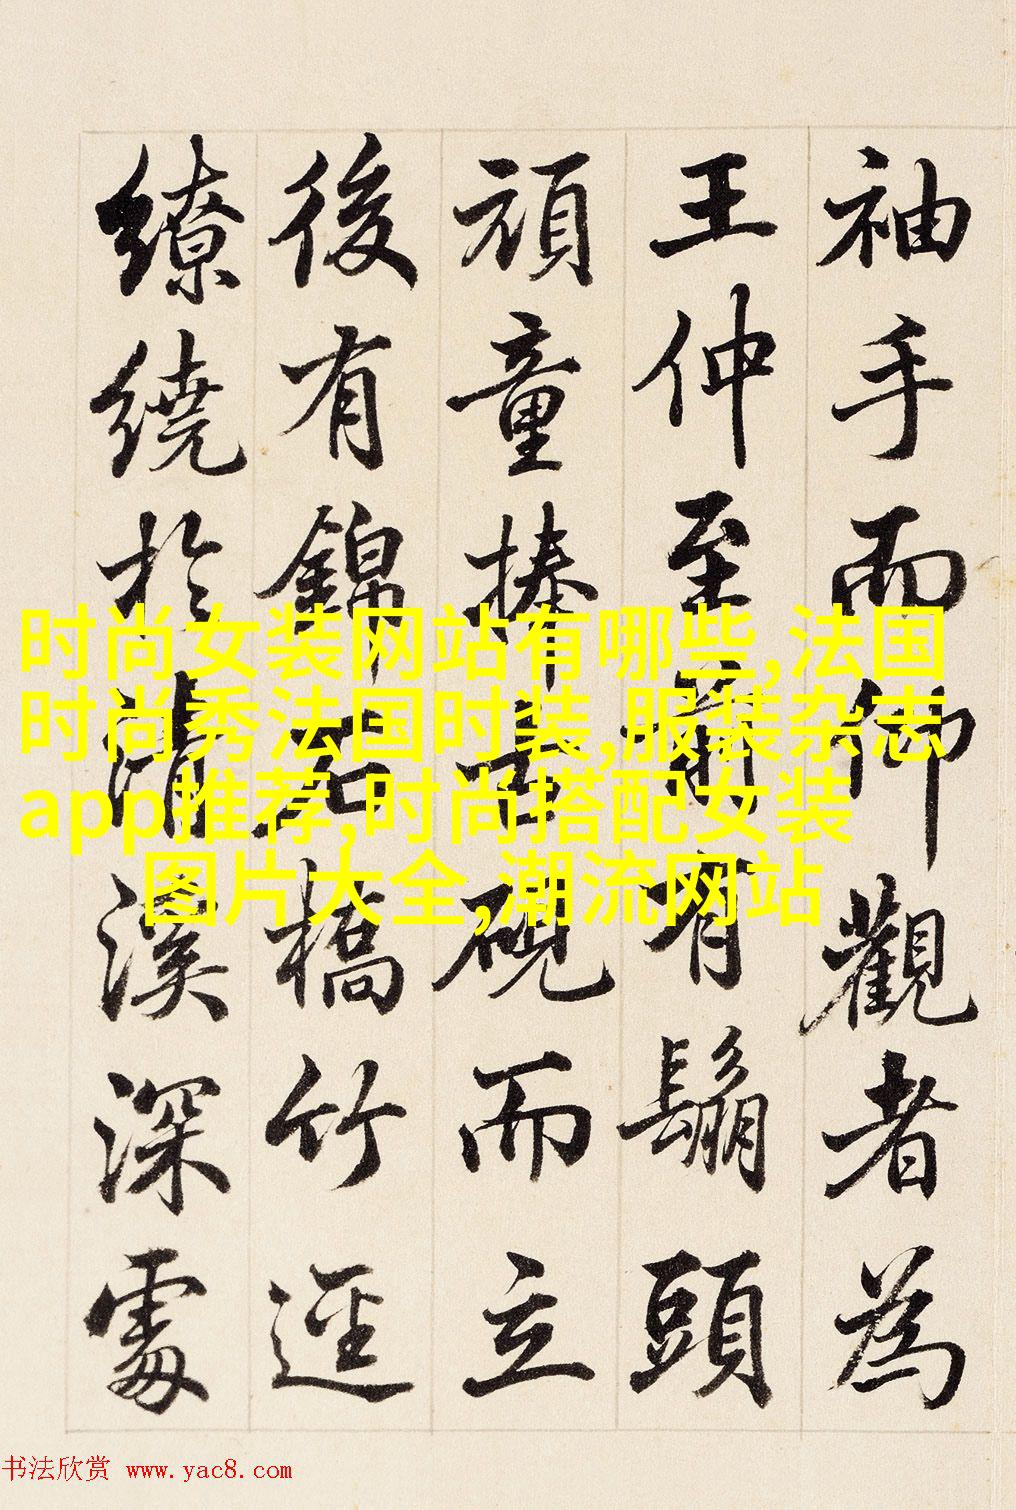 袖手而仰觀者為
王仲至前有鬅頭
頑童捧古硯而立
後有錦石橋竹逕
繚繞於清溪深處
时尚女装网站有哪些,法国
时尚秀法国时装,服装杂志
app推荐,时尚搭配女装
图片大全,潮流网站
书法欣赏 www.yac8.com